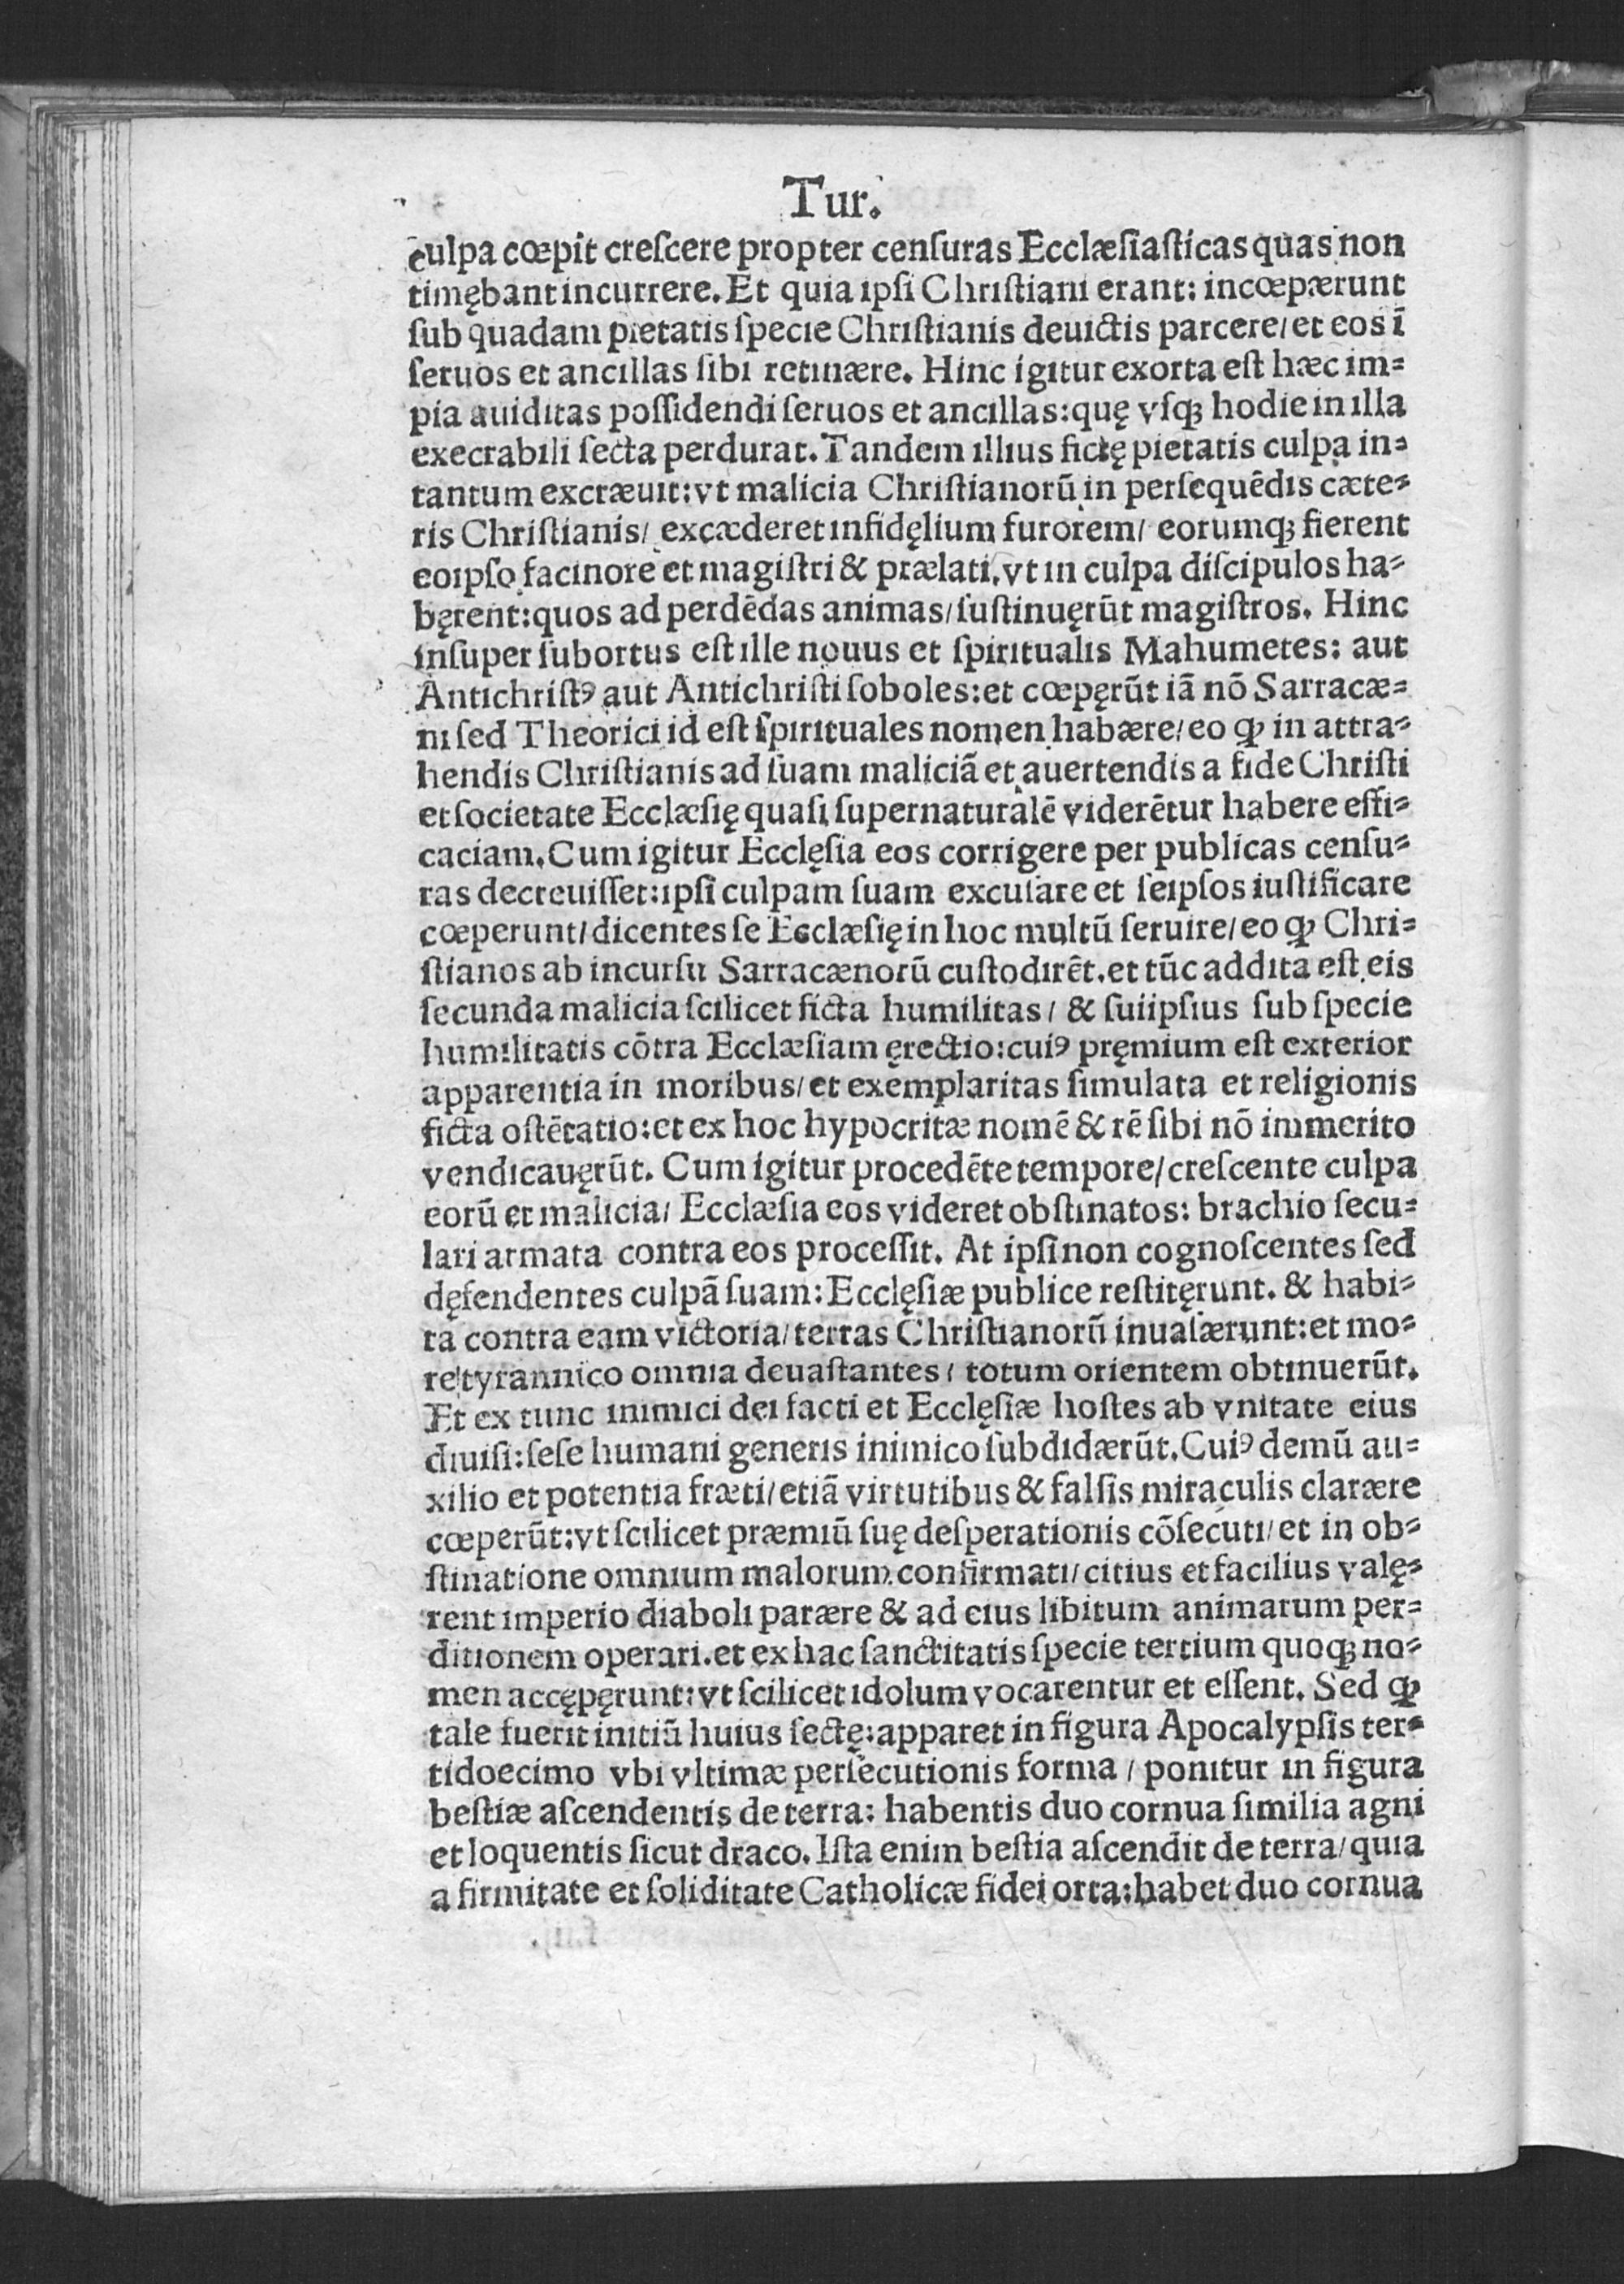 Tur.
culpa cœpit creſcere propter cenſuras Ecclæſiaſticas quas non
timębant incurrere. Et quia ipſi Chriſtiani erant: incœpærunt
ſub quadam pietatis ſpecie Chriſtianis deuictis parcere/ et eos ī
ſeruos et ancillas ſibi retinære. Hinc igitur exorta eſt hæc im⸗
pia auiditas poſſidendi ſeruos et ancillas: quę vſqꝫ hodie in illa
execrabili ſecta perdurat. Tandem illius fictę pietatis culpa in⸗
tantum excræuit: vt malicia Chriſtianorū in perſequēdis cæte⸗
ris Chriſtianis/ excæderet infidęlium furorem/ eorumqꝫ fierent
eoipſo facinore et magiſtri & prælati, vt in culpa diſcipulos ha⸗
bęrent: quos ad perdēdas animas/ ſuſtinuęrūt magiſtros. Hinc
inſuper ſubortus eſt ille nouus et ſpiritualis Mahumetes: aut
Antichriſtꝰ aut Antichriſti ſoboles: et cœpęrūt iā nō Sarracæ⸗
ni ſed Theorici id eſt ſpirituales nomen habære/ eo ꝙ in attra⸗
hendis Chriſtianis ad ſuam maliciā et auertendis a fide Chriſti
et ſocietate Ecclæſię quaſi ſupernaturalē viderētur habere effi⸗
caciam. Cum igitur Ecclęſia eos corrigere per publicas cenſu⸗
ras decreuiſſet: ipſi culpam ſuam excuſare et ſeipſos iuſtificare
cœperunt/ dicentes ſe Ecclæſię in hoc multū ſeruire/ eo ꝙ Chri⸗
ſtianos ab incurſu Sarracænorū cuſtodirēt. et tūc addita eſt eis
ſecunda malicia ſcilicet ficta humilitas/ & ſuiipſius ſub ſpecie
humilitatis cōtra Ecclæſiam ęrectio: cuiꝰ pręmium eſt exterior
apparentia in moribus/ et exemplaritas ſimulata et religionis
ficta oſtētatio: et ex hoc hypocritæ nomē & rē ſibi nō immerito
vendicauęrūt. Cum igitur procedēte tempore/ creſcente culpa
eorū et malicia/ Ecclæſia eos videret obſtinatos: brachio ſecu⸗
lari armata contra eos proceſſit. At ipſi non cognoſcentes ſed
dęfendentes culpā ſuam: Ecclęſiæ publice reſtitęrunt. & habi⸗
ta contra eam victoria/ terras Chriſtianorū inuaſærunt: et mo⸗
re tyrannico omnia deuaſtantes/ totum orientem obtinuerūt.
Et ex tunc inimici dei facti et Ecclęſiæ hoſtes ab vnitate eius
diuiſi: ſeſe humani generis inimico ſubdidærūt. Cuiꝰ demū au⸗
xilio et potentia fræti/ etiā virtutibus & falſis miraculis claræere
cœperūt: vt ſcilicet præmiū ſuę deſperationis cōſecuti/ et in ob⸗
ſtinatione omnium malorum confirmati/ citius et facilius valę⸗
rent imperio diaboli paræere & ad eius libitum animarum per⸗
ditionem operari. et ex hac ſanctitatis ſpecie tertium quoqꝫ no⸗
men accępęrunt: vt ſcilicet idolum vocarentur et eſſent. Sed ꝙ
tale fuerit initiū huius ſectę: apparet in figura Apocalypſis ter⸗
tidoecimo vbi vltimæ perſecutionis forma/ ponitur in figura
beſtiæ aſcendentis de terra: habentis duo cornua ſimilia agni
et loquentis ſicut draco. Iſta enim beſtia aſcendit de terra/ quia
a firmitate et ſoliditate Catholicæ fidei orta: habet duo cornua